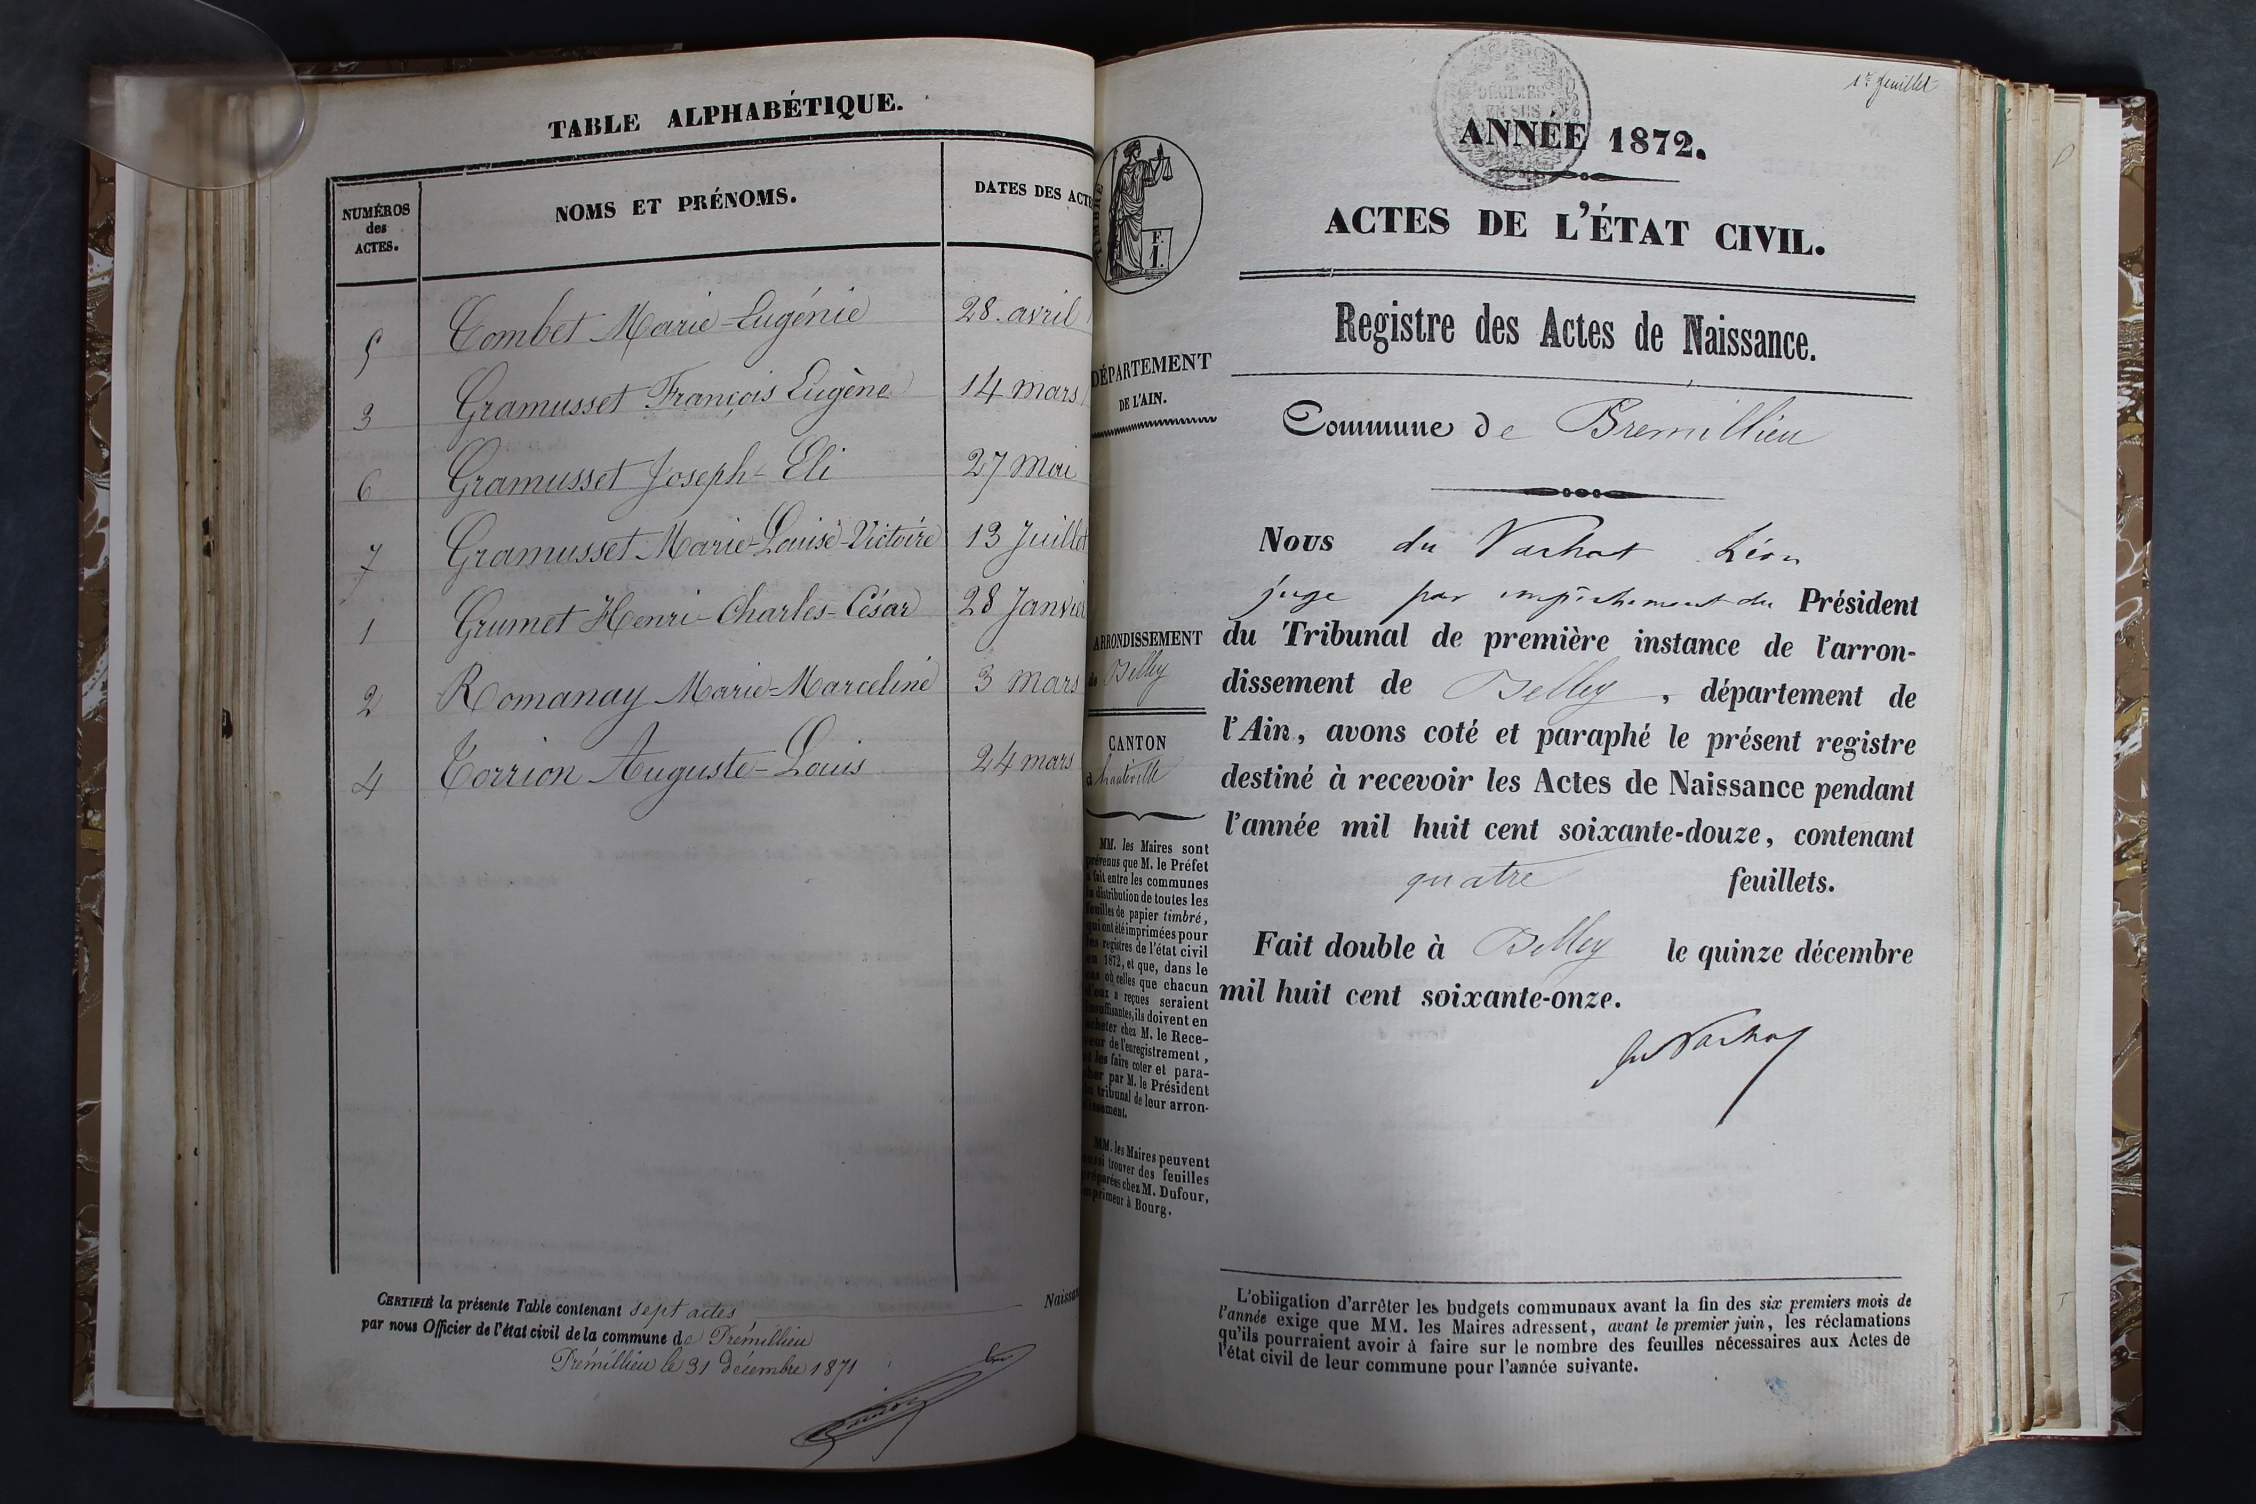 TABLE ALPHABÉTIQUE.
NUMÉROS
des
ACTES.
NOMS ET PRÉNOMS.
DATES DES ACTE
5 Combet Marie-Eugénie 28 avril
3 Gramusset François Eugène 14 mars
6 Gramusset Joseph-Eli 27 Mai
7 Gramusset Marie-Louise-Victoire 13 Juillet
1 Grumet Henri-Charles-César 28 Janvier
2 Romanay Marie-Marceline 3 Mars
4 Torrion Auguste-Louis 24 mars
CERTIFIÉ la présente Table contenant sept actes
Naissan
par nous Officier de l'état civil de la commune de Prémillieu
Prémillieu le 31 décembre 1871
1er feuillet
2
DÉCIMES
EN SUS
ANNÉE 1872.
ACTES DE L'ÉTAT CIVIL.
TIMBRE
F.
1.
Registre des Actes de Naissance.
DÉPARTEMENT
DE L'AIN.
Commune de Premillieu
Nous du Vachat Léon
juge par empêchement du Président
du Tribunal de première instance de l'arron-
dissement de Belley, département de
l'Ain, avons coté et paraphé le présent registre
destiné à recevoir les Actes de Naissance pendant
l'année mil huit cent soixante-douze, contenant
quatre feuillets.
Fait double à Belley le quinze décembre
mil huit cent soixante-onze.
du Vachat
ARRONDISSEMENT
de Belley
CANTON
d'hauteville
MM. les Maires sont
prévenus que M. le Préfet
a fait entre les communes
la distribution de toutes les
feuilles de papier timbré,
qui ont été imprimées pour
les registres de l'état civil
en 1872, et que, dans le
cas où celles que chacun
d'eux a reçues seraient
insuffisantes, ils doivent en
acheter chez M. le Rece-
veur de l'enregistrement,
et les faire coter et para-
pher par M. le Président
du tribunal de leur arron-
dissement.
MM. les Maires peuvent
aussi trouver des feuilles
préparées chez M. Dufour,
imprimeur à Bourg.
L'obligation d'arrêter les budgets communaux avant la fin des six premiers mois de
l'année exige que MM. les Maires adressent, avant le premier juin, les réclamations
qu'ils pourraient avoir à faire sur le nombre des feuilles nécessaires aux Actes de
l'état civil de leur commune pour l'année suivante.